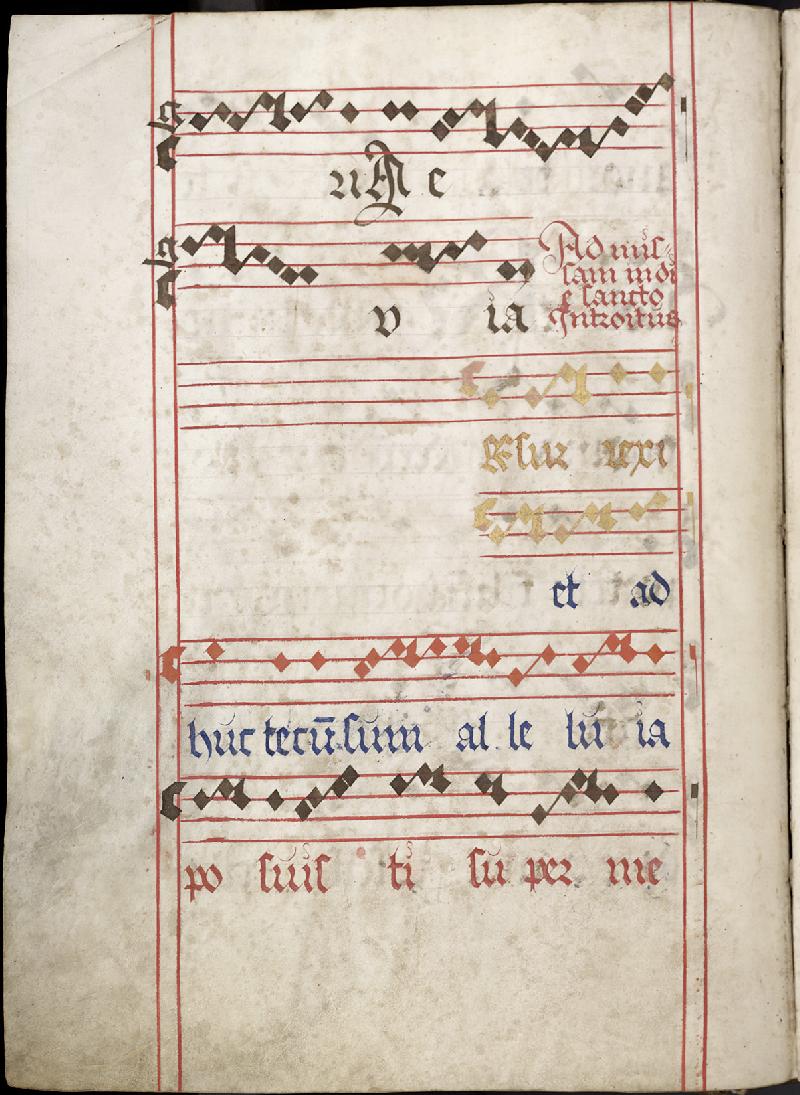 u A e
v ia
Ad mis-
sam in di
e sancto
Introitus
Resur rexi
et ad
huc tecū sum al le lu ia
po suis ti su per me